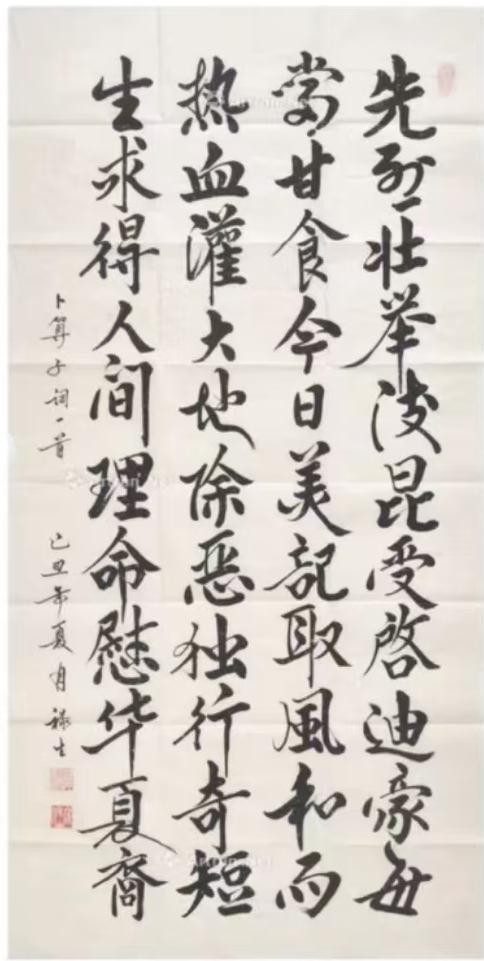 先烈壮举淩昆受啓迪豪每
尝甘食今日美記取風和而
热血灌大地除恶独行奇短
生求得人间理命慰华夏裔
卜算子词一首 己丑年夏月 禄生